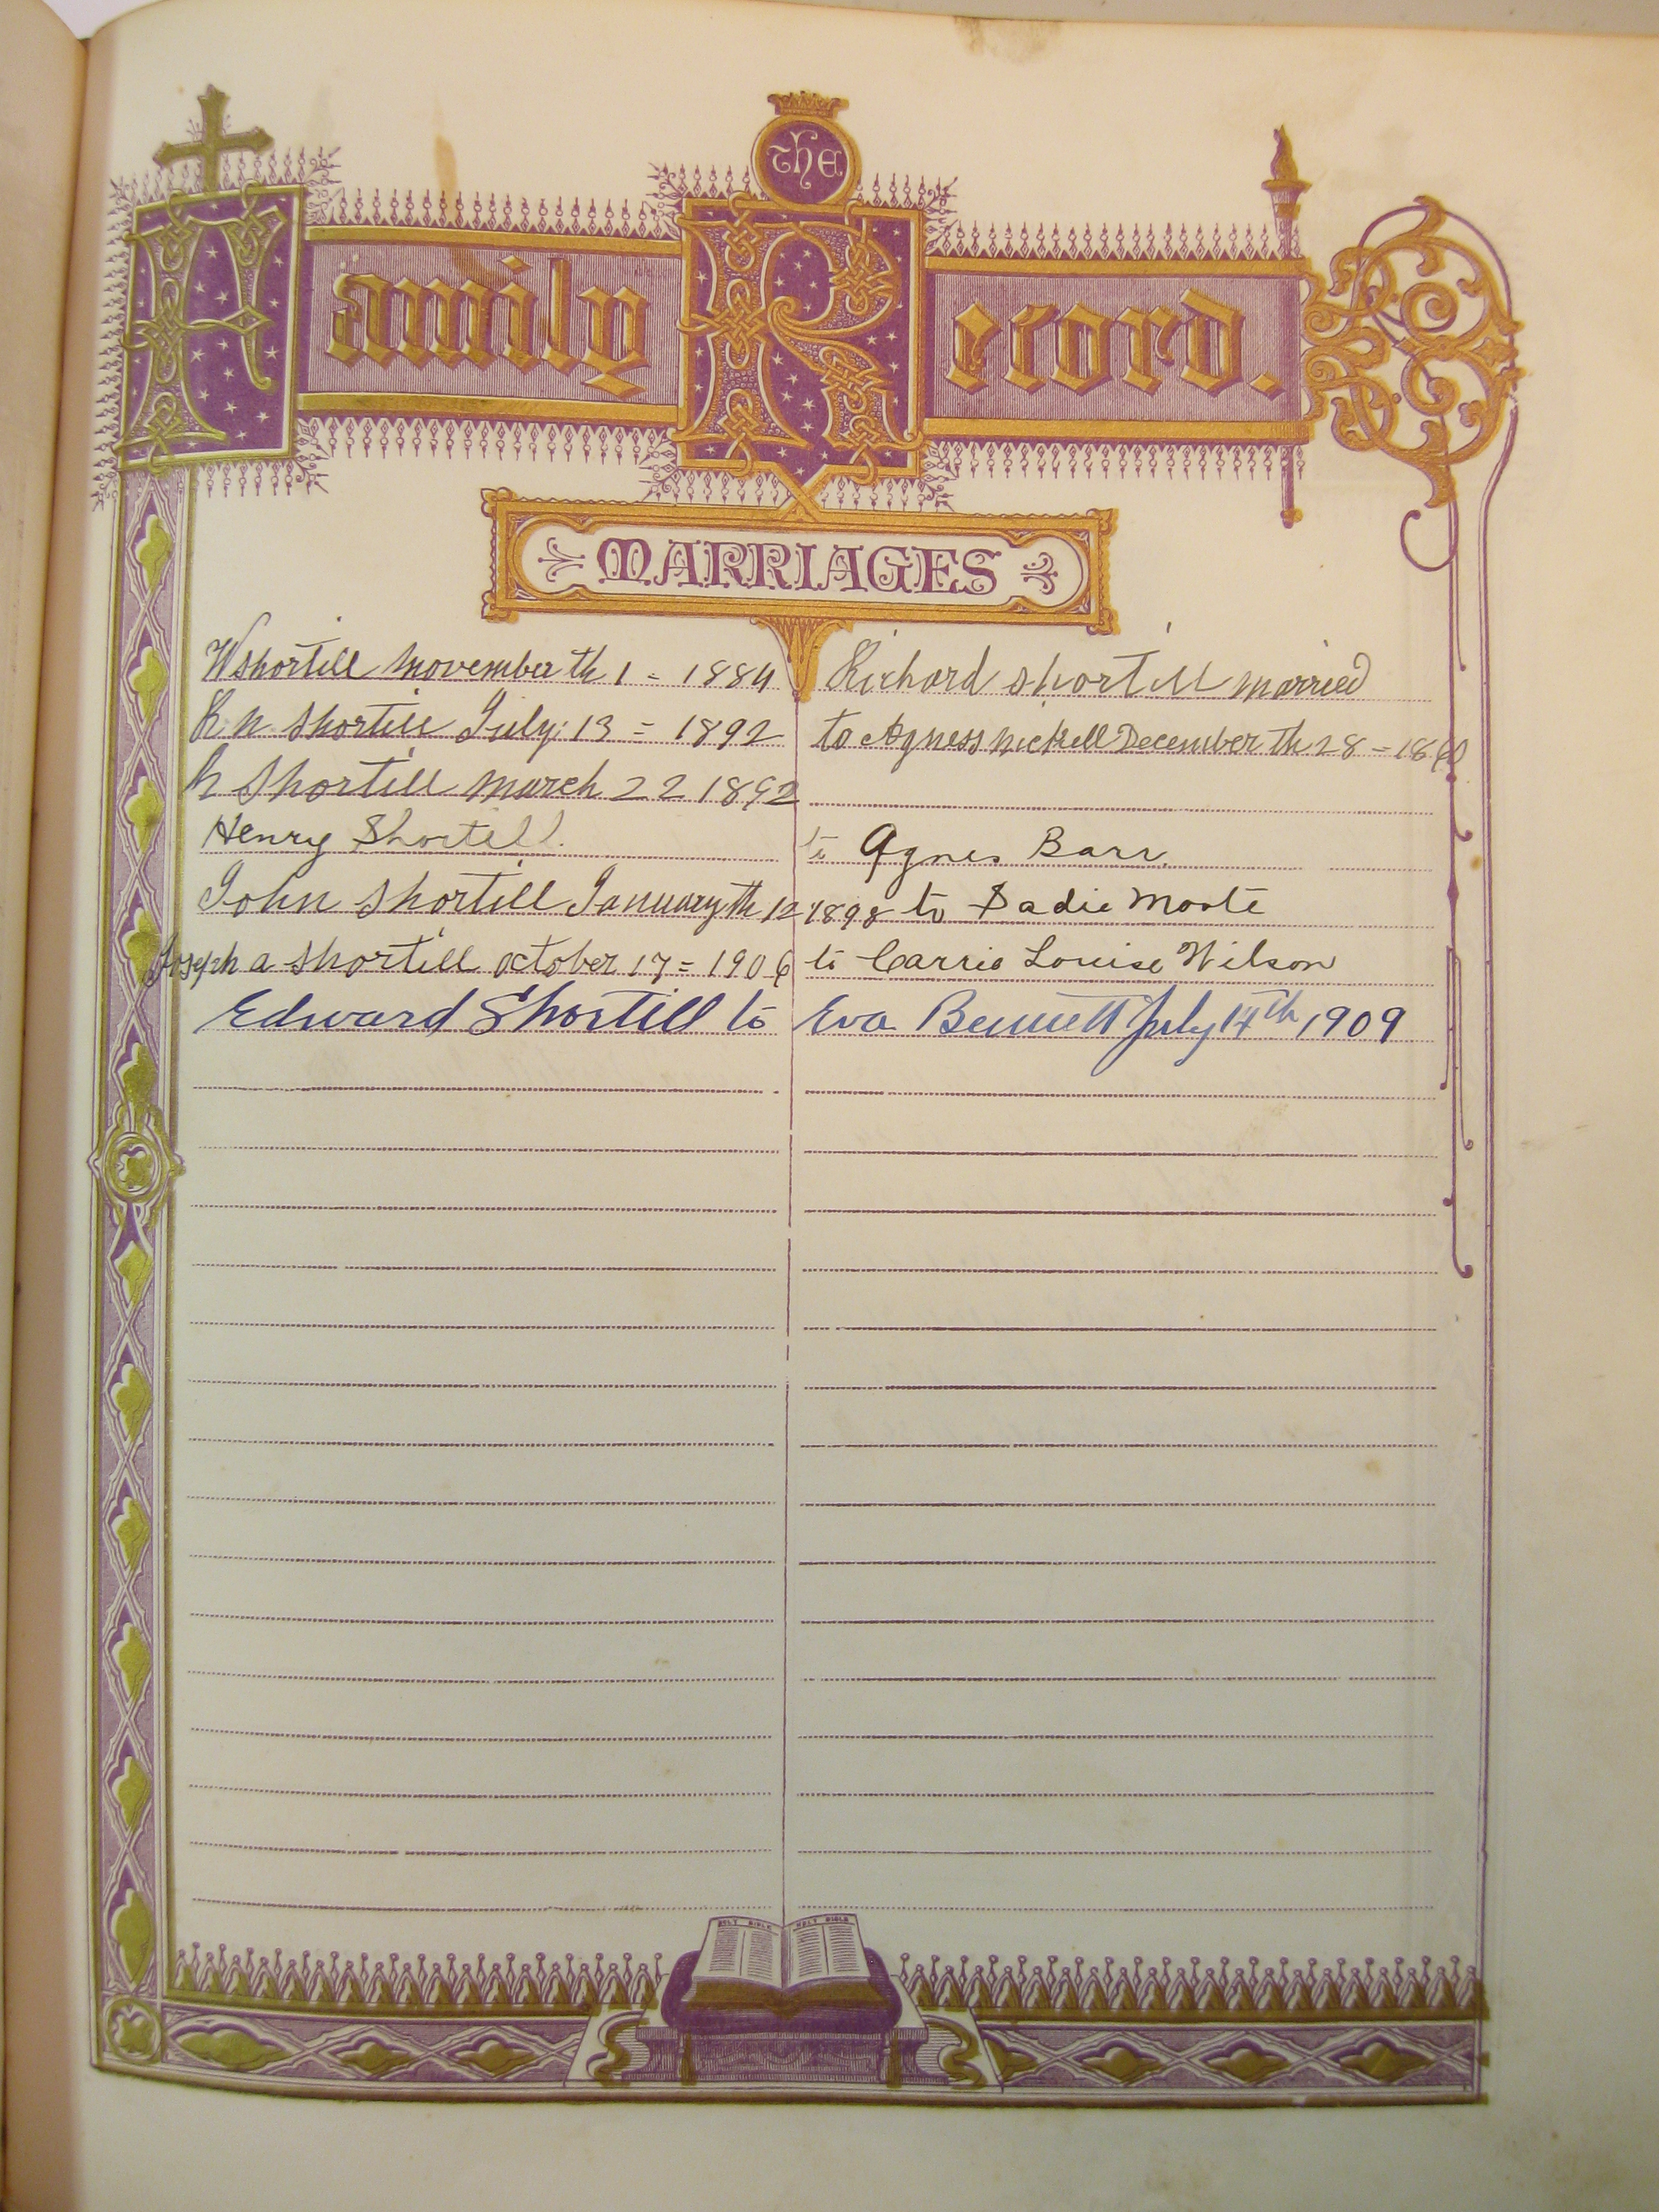 The
Family Record.
MARRIAGES
W Shortill November th 1 = 1884
R N Shortill July: 13 = 1892
R Shortill March 22 1892
Henry Shortill.
John Shortill January th 12
Joseph a Shortill October 17 = 1906
Edward Shortill to
Richard Shortill married
to Agness Nickell December th 28 = 1860
to Agnes Barr.
1898 to Sadie
to Carrie Louise Wilson
Eva Bennett July 14th, 1909
HOLY BIBLE HOLY BIBLE